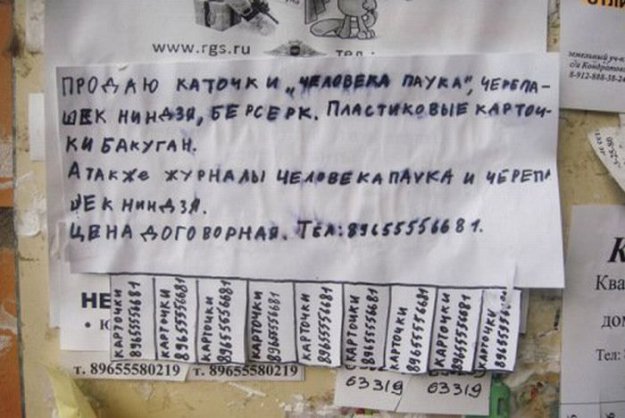 www.rgs.ru
тел.
ОТЛИ
земельный уч-к
с/п Кондратово
8-912-888-38-24
ПРОДАЮ КАТОЧКИ „ЧЕЛОВЕКА ПАУКА“, ЧЕРЕПА-
ШЕК НИНДЗЯ, БЕРСЕРК. ПЛАСТИКОВЫЕ КАРТОЧ-
КИ БАКУГАН.
А ТАКЖЕ ЖУРНАЛЫ ЧЕЛОВЕКА ПАУКА И ЧЕРЕПА
ШЕК НИНДЗЯ.
ЦЕНА ДОГОВОРНАЯ. ТЕЛ: 89655556681.
КАРТОЧКИ
89655556681
КАРТОЧКИ
89655556681
КАРТОЧКИ
89655556681
КАРТОЧКИ
89655556681
КАРТОЧКИ
89655556681
КАРТОЧКИ
89655556681
КАРТОЧКИ
89655556681
КАРТОЧКИ
89655556681
КАРТОЧКИ
НЕ
• Ю
т. 89655580219
т. 89655580219
63319
63319
К
Ква
дом
Тел: